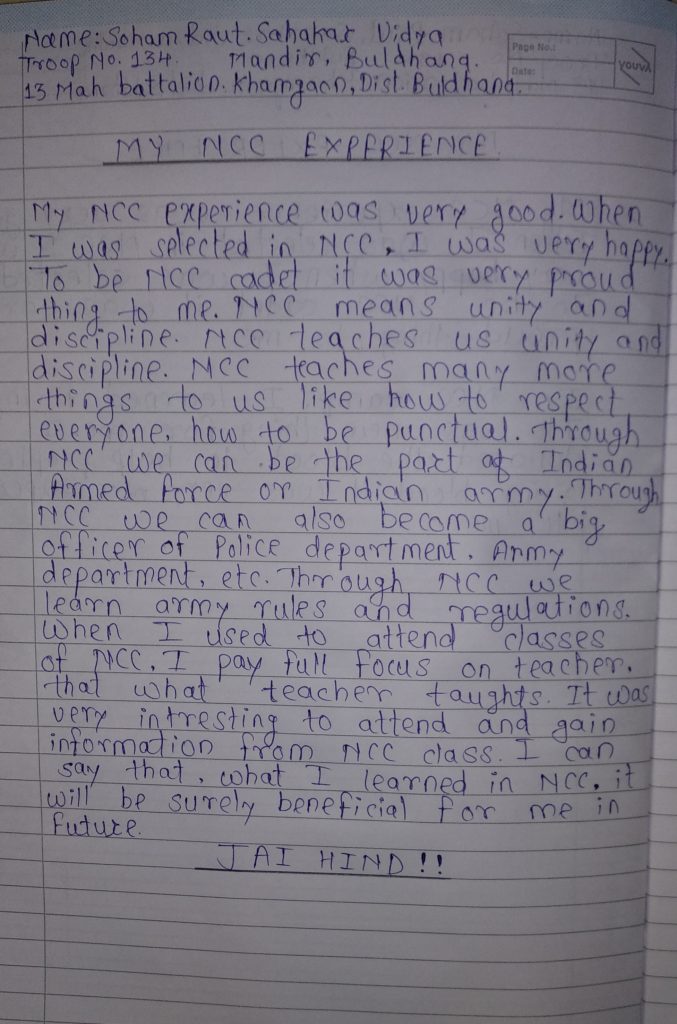 Name: Soham Raut. Sahakar Vidya
Troop No. 134. Mandir, Buldhana.
13 Mah battalion. Khamgaon, Dist. Buldhana.
Page No.:
Date:
YOUVA
MY NCC EXPERIENCE
My NCC experience was very good. When
I was selected in NCC, I was very happy.
To be NCC cadet it was very proud
thing to me. NCC means unity and
discipline. NCC teaches us unity and
discipline. NCC teaches many more
things to us like how to respect
everyone, how to be punctual. Through
NCC we can be the part of Indian
Armed force or Indian army. Through
NCC we can also become a big
officer of Police department, Army
department, etc. Through NCC we
learn army rules and regulations.
When I used to attend classes
of NCC, I pay full focus on teacher,
that what teacher taughts. It was
very intresting to attend and gain
information from NCC class. I can
say that, what I learned in NCC, it
will be surely beneficial for me in
future.
JAI HIND!!